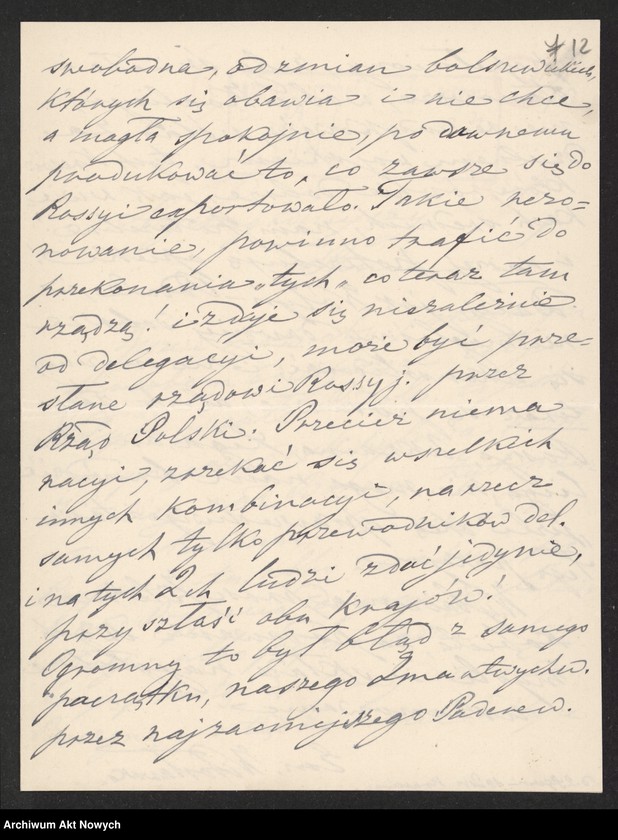 12
swobodna, od zmian bolszewickich,
których się obawia i nie chce,
a mogła spokojnie, po dawnemu
produkować to, co zawsze się do
Rossyi exportowało. Takie rezo=
nowanie, powinno trafić do
przekonania „tych” co teraz tam
rządzą! i zdaje się niezależnie
od delegacyi, może być prze=
słane rządowi Rossyj. przez
Rząd Polski. Przecież niema
racyi, zrzekać się wszelkich
innych kombinacyi, na rzecz
samych tylko przewodników del.
i na tych 2ch ludzi zdać jedynie,
przyszłość obu krajów!
Ogromny to był błąd z samego
początku, naszego Zmartwychw.
przez najzacniejszego Paderew.
Archiwum Akt Nowych